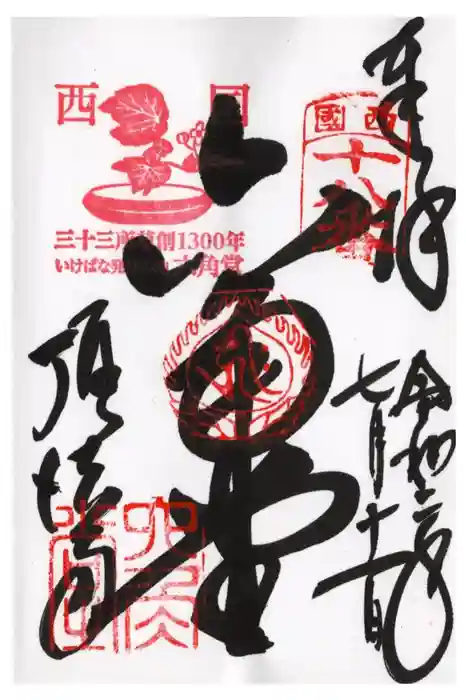 奉拝
西國
十八番
令和二年
七月十一日
西国
三十三所草創1300年
いけばな発祥の地 六角堂
六角堂
頂法寺
六角堂